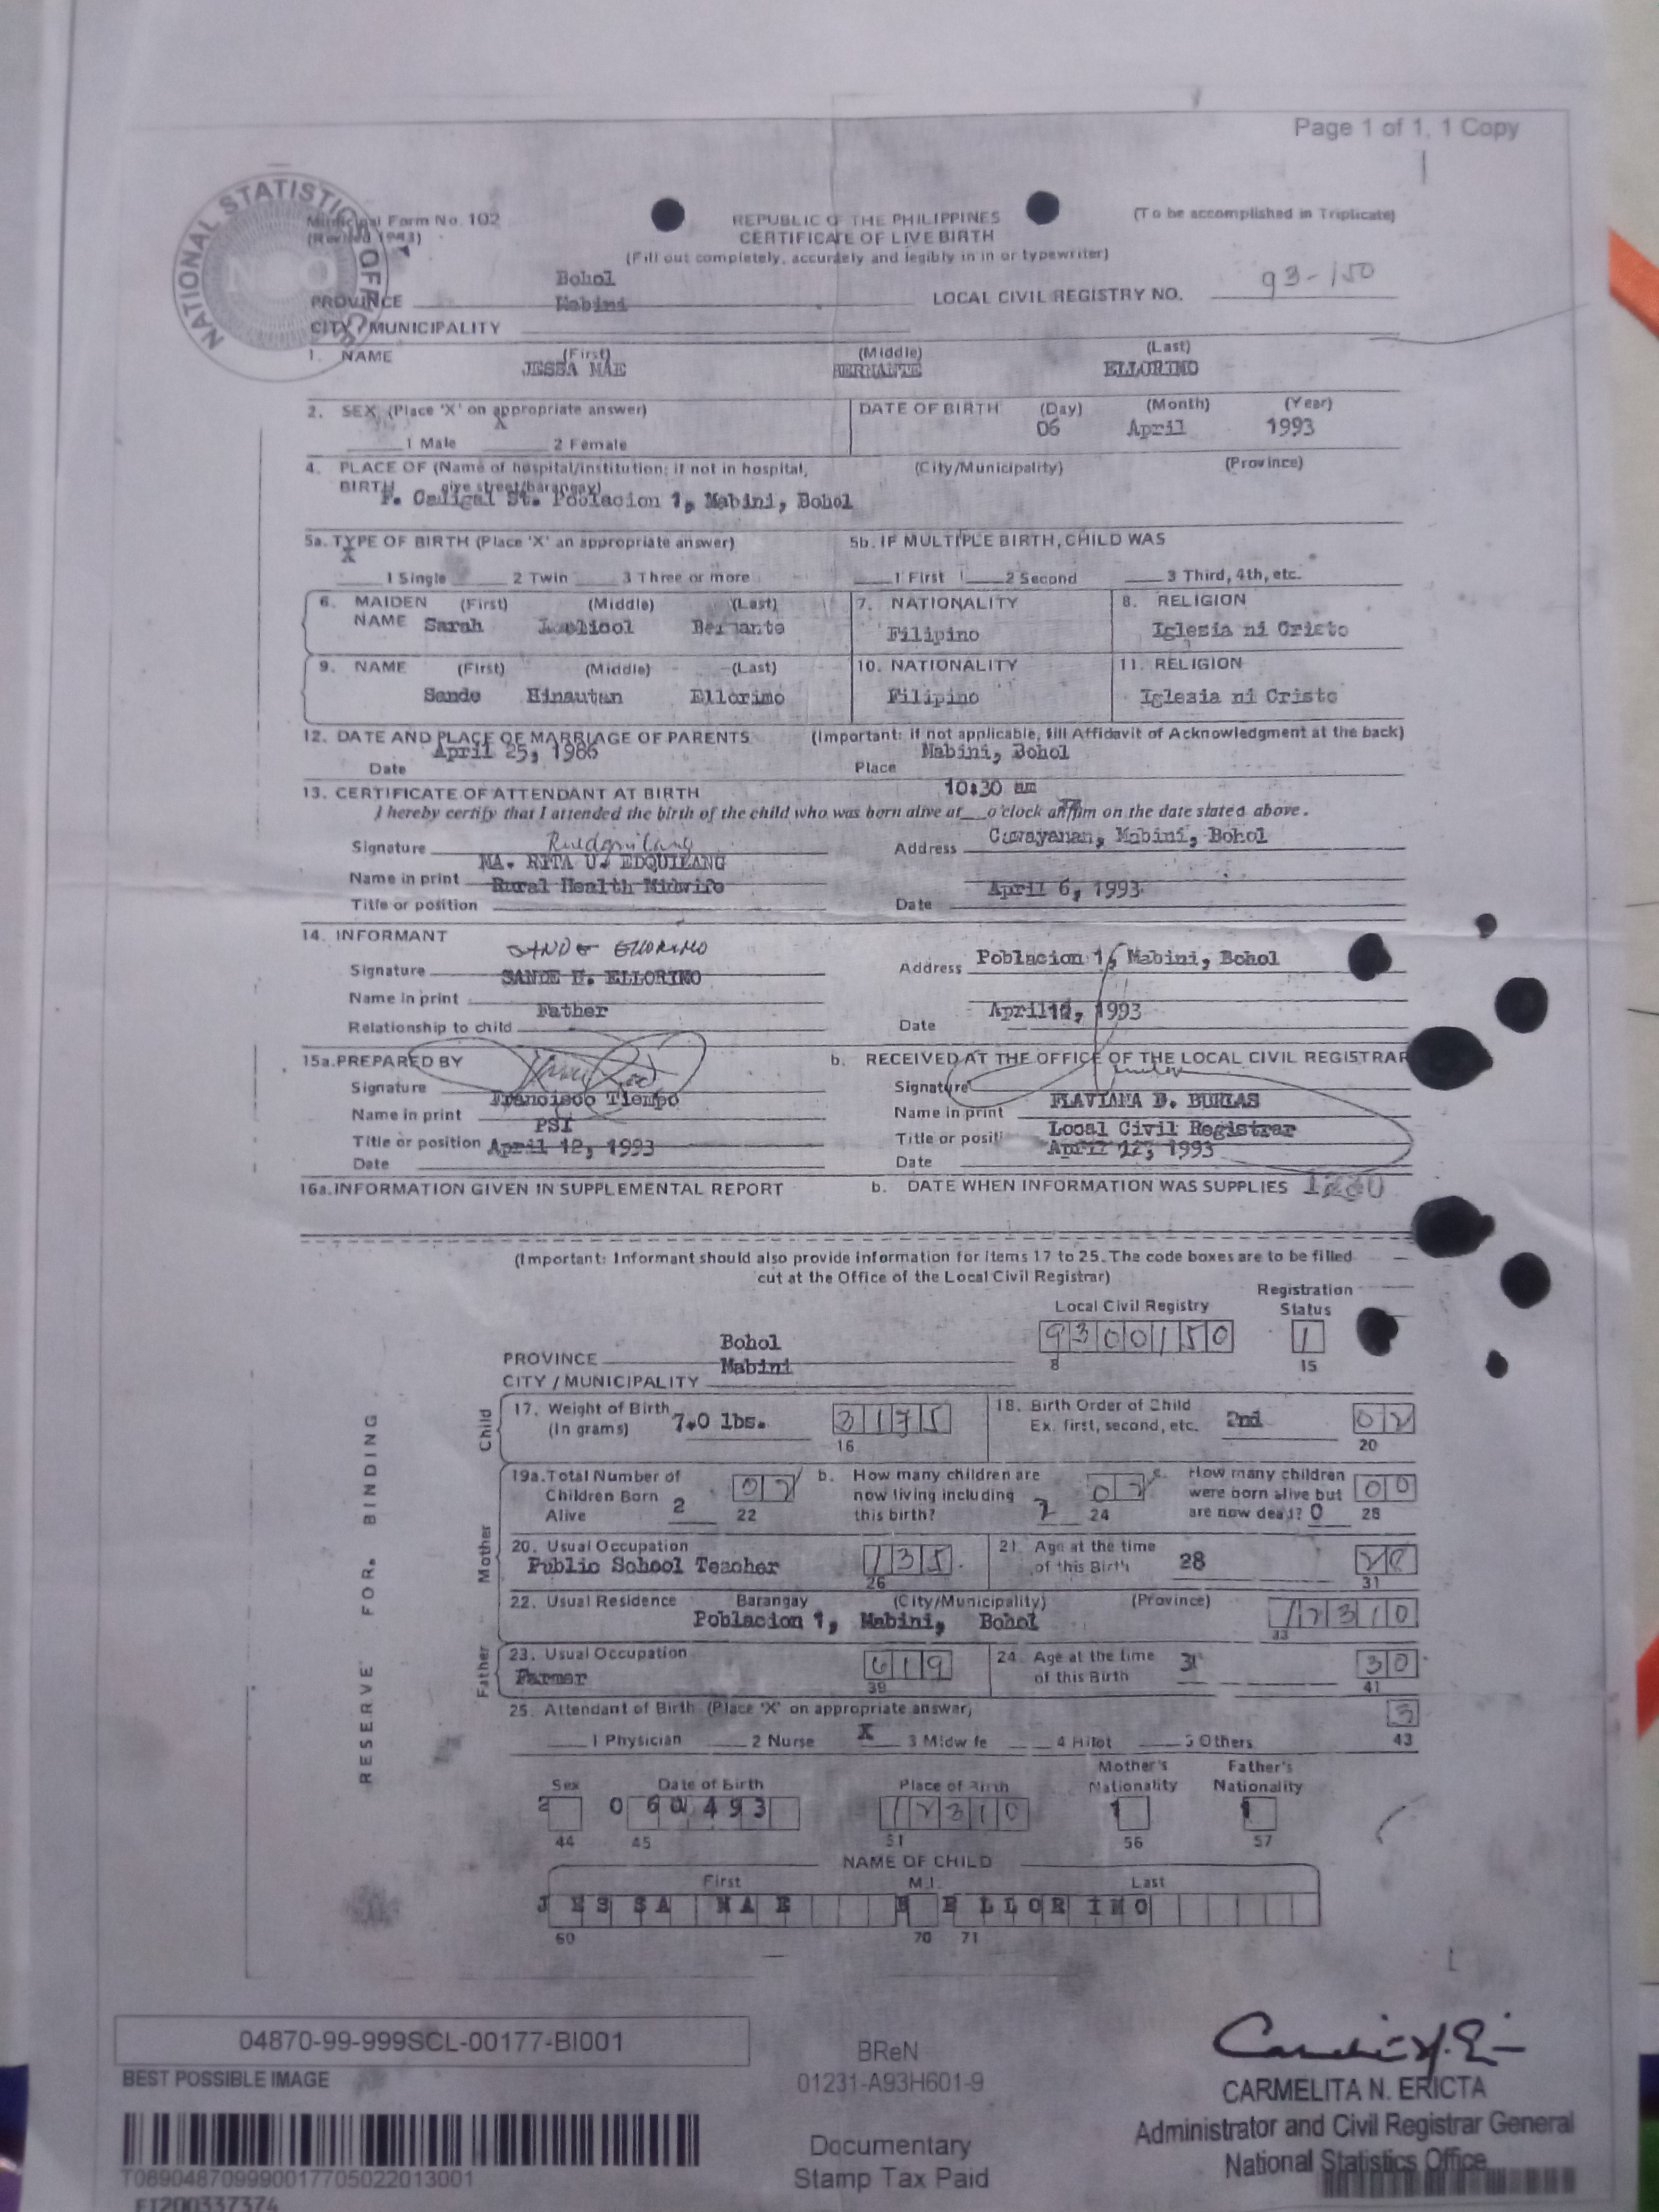 Page 1 of 1, 1 Copy
NATIONAL STATISTICS OFFICE
Municipal Form No. 102
(To be accomplished in Triplicate)
REPUBLIC OF THE PHILIPPINES
CERTIFICATE OF LIVE BIRTH
(Fill out completely, accurately and legibly in in or typewriter)
Bohol
PROVINCE Mabini LOCAL CIVIL REGISTRY NO. 93-150
CITY / MUNICIPALITY
1. NAME (First) (Middle) (Last)
JESSA MAE BERNANTE ELLORIMO
2. SEX (Place 'X' on appropriate answer) DATE OF BIRTH (Day) (Month) (Year)
X 06 April 1993
1 Male 2 Female
4. PLACE OF (Name of hospital/institution; if not in hospital, (City/Municipality) (Province)
BIRTH give street/barangay)
St. Poblacion 1, Mabini, Bohol
5a. TYPE OF BIRTH (Place 'X' an appropriate answer) 5b. IF MULTIPLE BIRTH, CHILD WAS
X
1 Single 2 Twin 3 Three or more 1 First 2 Second 3 Third, 4th, etc.
6. MAIDEN (First) (Middle) (Last) 7. NATIONALITY 8. RELIGION
NAME Sarah Bernante Filipino Iglesia ni Cristo
9. NAME (First) (Middle) (Last) 10. NATIONALITY 11. RELIGION
Sande Hinautan Ellorimo Filipino Iglesia ni Cristo
12. DATE AND PLACE OF MARRIAGE OF PARENTS (Important: if not applicable, fill Affidavit of Acknowledgment at the back)
April 25, 1986 Mabini, Bohol
Date Place
13. CERTIFICATE OF ATTENDANT AT BIRTH 10:30 am
I hereby certify that I attended the birth of the child who was born alive at o'clock am/pm on the date stated above.
Signature Address Cawayanan, Mabini, Bohol
MA. RITA U. EDQUILANG
Name in print Rural Health Midwife April 6, 1993
Title or position Date
14. INFORMANT SANDE ELLORIMO
Signature Address Poblacion 1, Mabini, Bohol
SANDE H. ELLORIMO
Name in print
Father April 12, 1993
Relationship to child Date
15a. PREPARED BY b. RECEIVED AT THE OFFICE OF THE LOCAL CIVIL REGISTRAR
Signature Signature
Francisco Tiempo FLAVIANA D. BURIAS
Name in print Name in print
PSI Local Civil Registrar
Title or position April 12, 1993 Title or positi April 12, 1993
Date Date
16a. INFORMATION GIVEN IN SUPPLEMENTAL REPORT b. DATE WHEN INFORMATION WAS SUPPLIES
(Important: Informant should also provide information for items 17 to 25. The code boxes are to be filled
cut at the Office of the Local Civil Registrar)
Local Civil Registry Registration Status
9300150 1
8 15
Bohol
PROVINCE Mabini
CITY / MUNICIPALITY
RESERVE FOR. BINDING
Child
17. Weight of Birth (In grams) 7.0 lbs. 3175
16
18. Birth Order of Child Ex. first, second, etc. 2nd 02
20
Mother
19a. Total Number of Children Born Alive 2 02
22
b. How many children are now living including this birth? 2 02
24
c. How many children were born alive but are now dead? 0 00
28
20. Usual Occupation
Public School Teacher 135
26
21. Age at the time of this Birth 28 28
31
22. Usual Residence Barangay (City/Municipality) (Province)
Poblacion 1, Mabini, Bohol 12310
33
Father
23. Usual Occupation
Farmer 619
39
24. Age at the time of this Birth 30
41
25. Attendant of Birth (Place 'X' on appropriate answer) 3
1 Physician 2 Nurse X 3 Midwife 4 Hilot 5 Others 43
Sex Date of Birth Place of Birth Mother's Nationality Father's Nationality
2 060493 12310 1 1
44 45 51 56 57
NAME OF CHILD
First M.I. Last
JESSA MAE B ELLORIMO
60 70 71
04870-99-999SCL-00177-BI001
BEST POSSIBLE IMAGE
T089048709990017705022013001
FT200337374
BReN
01231-A93H601-9
Documentary
Stamp Tax Paid
CARMELITA N. ERICTA
Administrator and Civil Registrar General
National Statistics Office